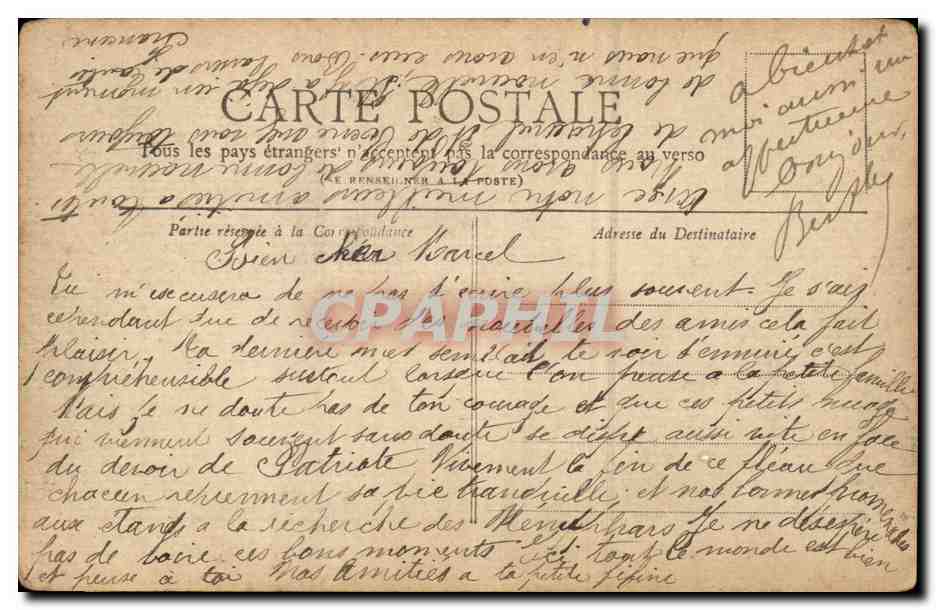 CARTE POSTALE
Tous les pays étrangers n'acceptent pas la correspondance au verso
(SE RENSEIGNER A LA POSTE)
Partie réservée à la Correspondance
Adresse du Destinataire
Bien cher Marcel
Tu m'escusera de ne pas t'ecrire plus souvent. Je sais
cependant que de recevoir des nouvelles des amis cela fait
plaisir. Ta derniere met semblait te voir t'ennuié c'est
compréhensible surtout lorsque l'on pense a la petite famille
Mais je ne doute pas de ton courage et que ces petits nuage
qui viennent souvent sans doute se disipe aussi vite en face
du devoir de Patriote Vivement la fin de ce fléau que
chacun reprennent sa vie tranquille, et nos bonnes promenades
aux etangs a la recherche des Je ne désespère
pas de voire ces bons moments Ici tout le monde est bien
et pense à toi Nos Amitiés a ta petite fifine
nos meilleurs amitiés a toutes
Nous avons toujours de bonne nouvelle
de et de Pierre dont nous toujours
de bonne nouvelle, il y a deja un moment
que nous n'en avons eues. Bons baisers de toute
a bientot
moi aussi un
affectueux
bonjour,
CPAPHIL